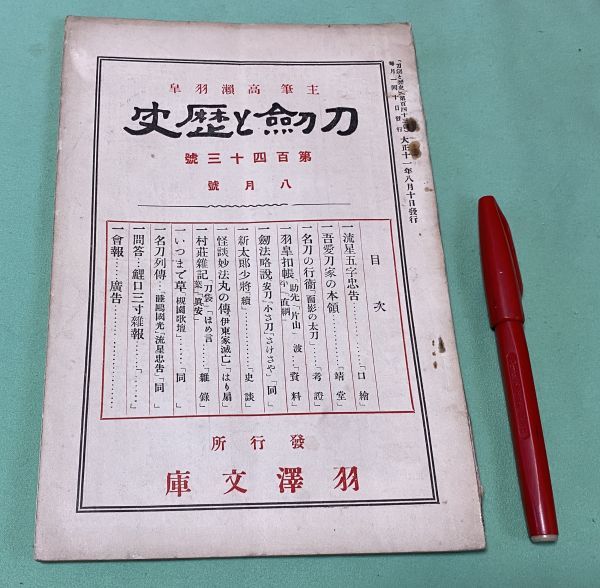 「刀劍と歷史」第百四十三號
每月一回十日發行
大正十一年八月十日發行
主筆高瀨羽皐
刀劍と歷史
第百四十三號
八月號
目次
一流星五字忠告……「口繪」
一吾愛刀家の本領……「靖堂」
一名刀の行衛「面影の太刀」……「考證」
一羽皐扣帳「助光」「片山一波」「直綱」…「資料」
一劒法略說「安刀」「小さ刀」「さけさや」「同」
一新太郎少將「續」……「史談」
一怪談妙法丸の傳「伊東家滅亡」「はり扇」
一村莊雜記「刀袋」「はめ言」「眞安」…「雜錄」
一いつまで草「槻園歌壇」……「同」
一名刀列傳…「睡鷗國光」「流星忠告」「同」
一問答…鯉口三寸雜報……「……」
一會報……廣告……
發行所
羽澤文庫